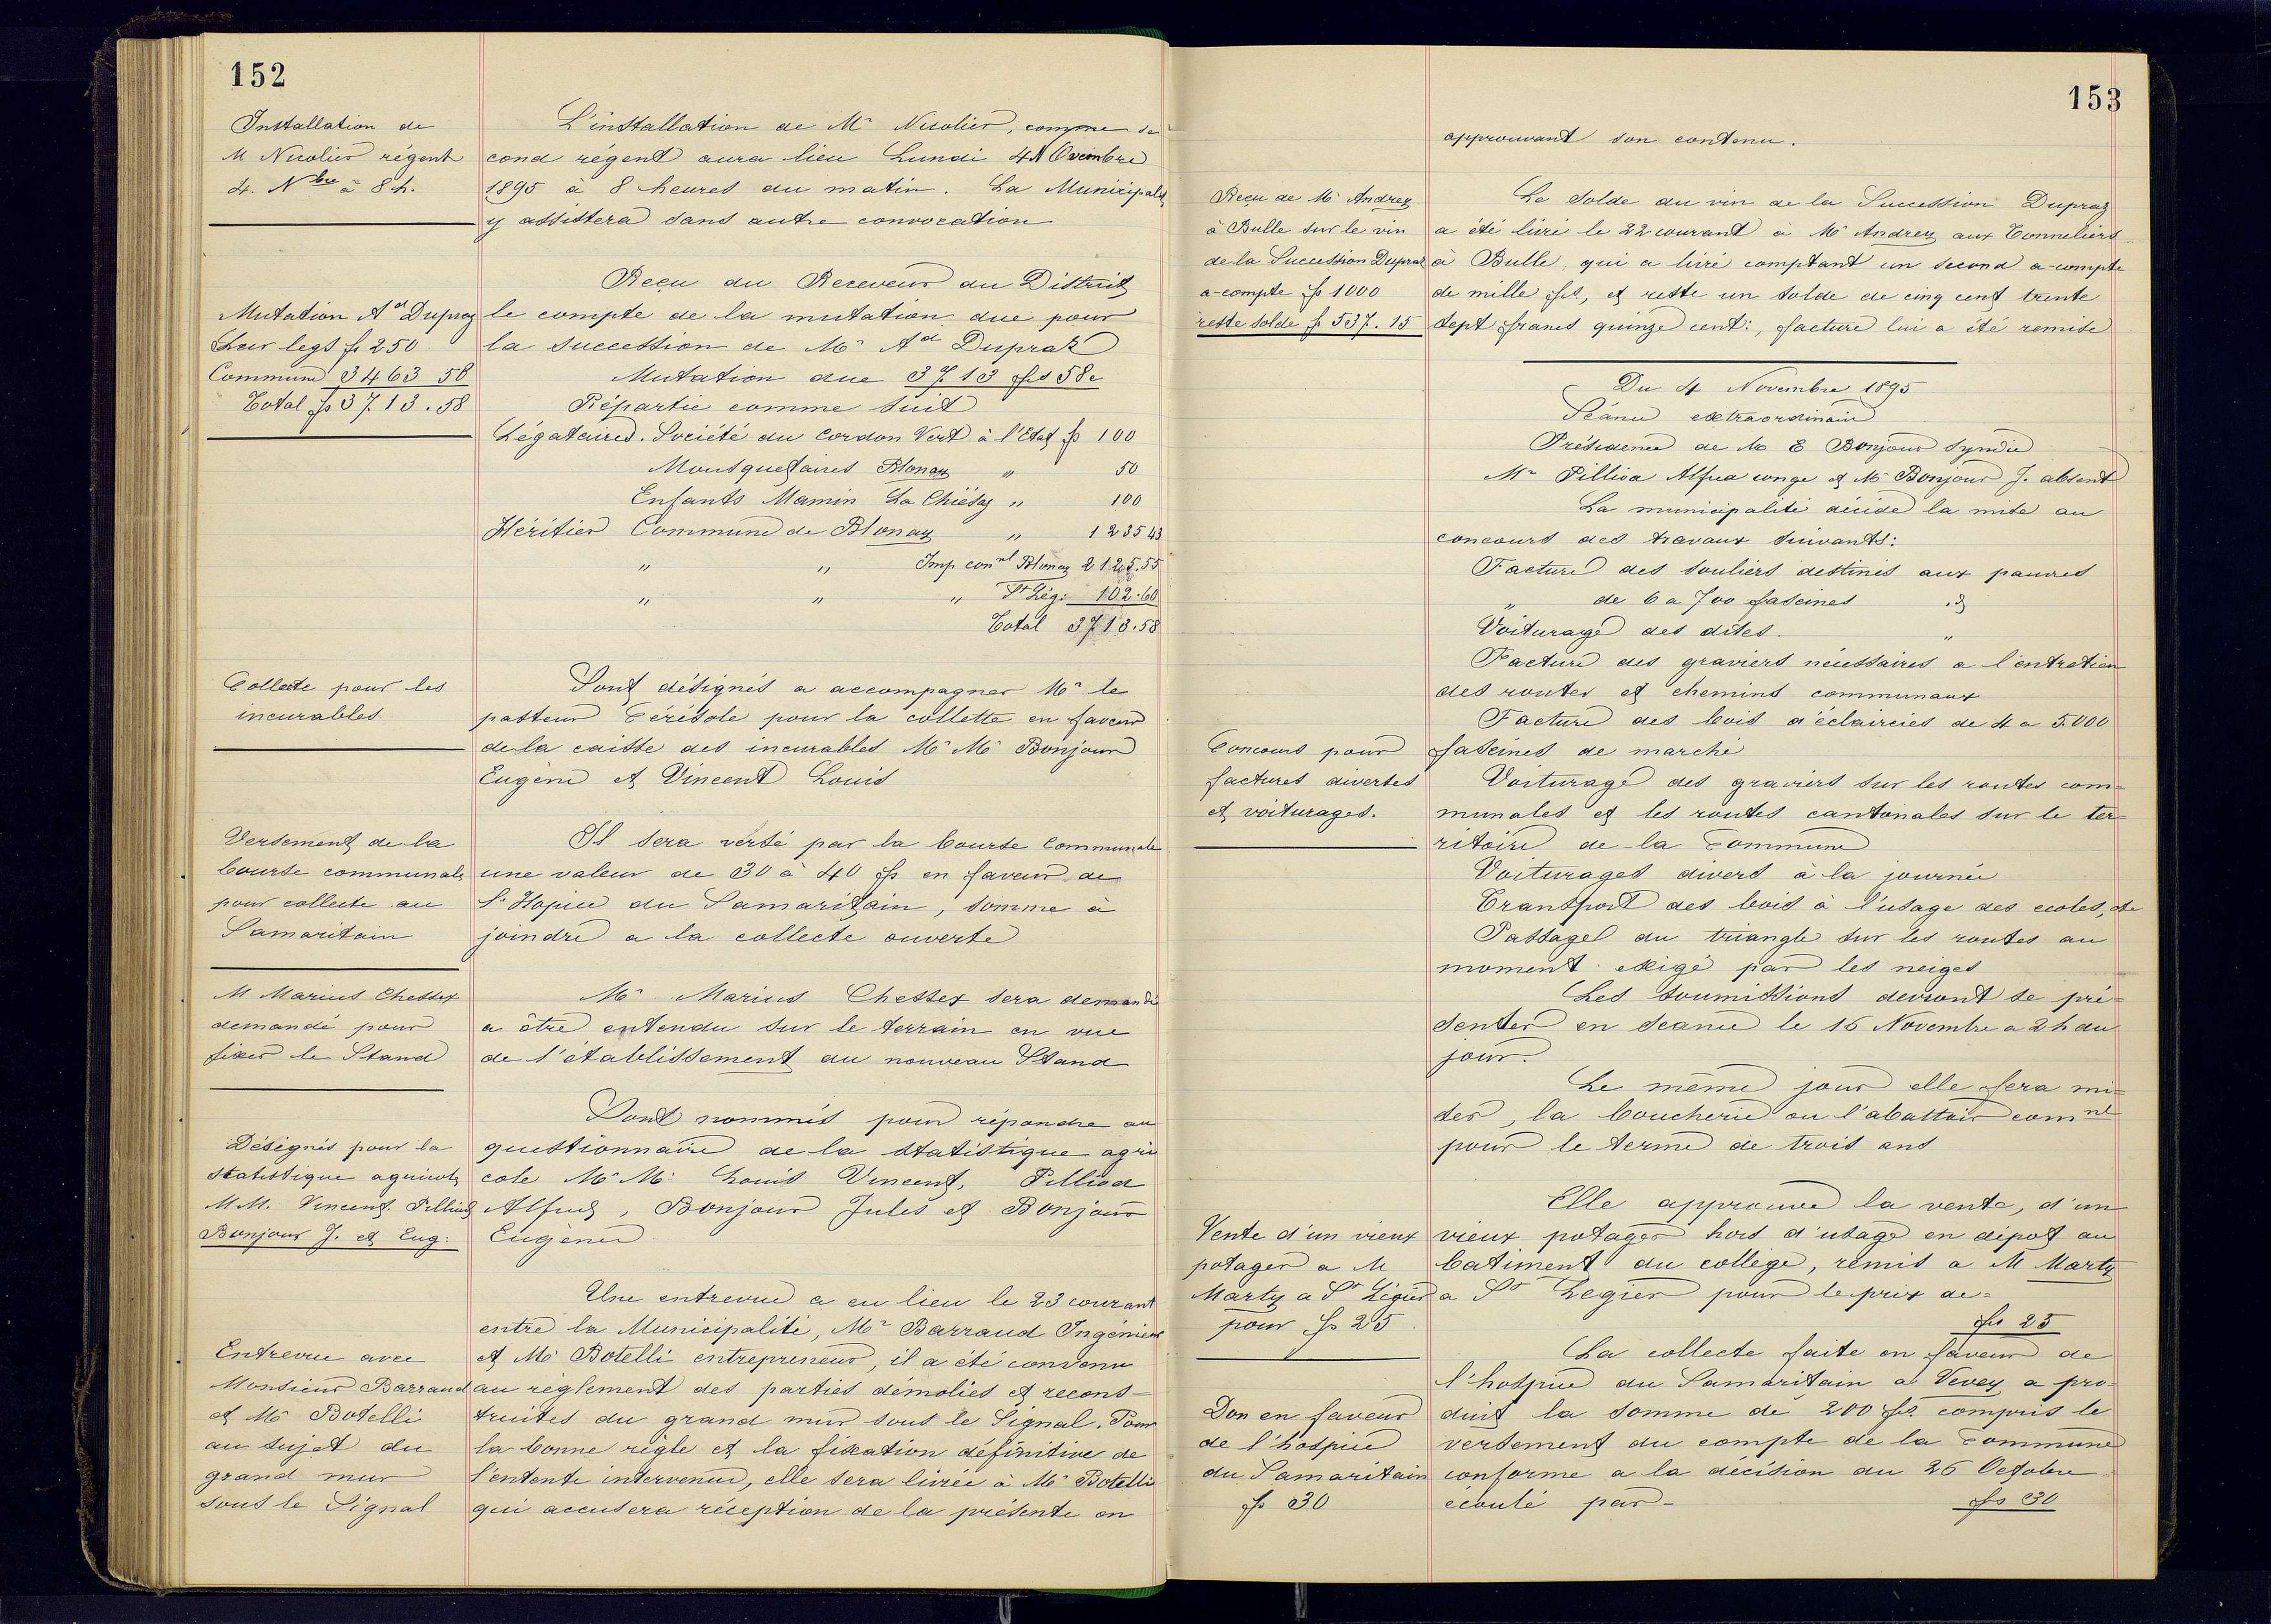 152
Installation de
M Nicolier régent
4. Nbre à 8 h.
L'installation de Mr Nicolier, comme se
cond régent aura lieu Lundi 4 Novembre
1895 à 8 heures du matin. La Municipalité
y assistera sans autre convocation
Mutation Ad Dupraz
Sur legs fr 250
Commune 3463 58
Total fr 3713.58
Reçu du Receveur du District
le compte de la mutation due pour
la succession de Mr Ad Dupraz
Mutation due 3713 frs 58c
Répartie comme suit
Légataires. Société du Cordon Vert à l'Etat fr 100
Mousquetaires Blonay " 50
Enfants Mamin La Chiésaz " 100
Héritier Commune de Blonay " 1235 43
" " Imp comnl Blonay 2125.55
" " " St Lég: 102.60
Total 3713.58
Collecte pour les
incurables
Sont désignés a accompagner Mr le
pasteur Cérésole pour la collette en faveur
de la caisse des incurables Mr Mr Bonjour
Eugène et Vincent Louis
Versement de la
bourse communale
pour collecte au
Samaritain
Il sera versé par la bourse Communale
une valeur de 30 à 40 fr en faveur de
l'Hopice du Samaritain, somme à
joindre a la collecte ouverte
M Marius Chessex
demandé pour
fixer le Stand
Mr Marius Chessex sera demandé
a être entendu sur le terrain en vue
de l'établissement du nouveau Stand
Désignés pour la
statistique agricole
M M. Vincent Pilliod
Bonjour J. et Eug:
Sont nommés pour répondre au
questionnaire de la statistique agri
cole Mr Mr Louis Vincent, Pilliod
Alfred, Bonjour Jules et Bonjour
Eugène
Entrevue avec
Monsieur Barraud
et Mr Botelli
au sujet du
grand mur
sous le Signal
Une entrevue a eu lieu le 23 courant
entre la Municipalité, Mr Barraud Ingénieur
et Mr Botelli entrepreneur, il a été convenu
au règlement des parties démolies et recons-
truites du grand mur sous le Signal. Pour
la bonne règle et la fixation définitive de
l'entente intervenue, elle sera livrée à Mr Botelli
qui accusera réception de la présente en
153
approuvant son contenu.
Reçu de Mr Andrey
à Bulle sur le vin
de la Succession Dupraz
a-compte fr 1000
reste solde fr 537.15
Le solde du vin de la Succession Dupraz
a été livré le 22 courant à Mr Andrey aux Tonneliers
à Bulle, qui a livré comptant un second a-compte
de mille frs, et reste un solde de cinq cent trente
sept francs quinze cent:, facture lui a été remise
Du 4 Novembre 1895
Séance extraordinaire
Présidence de Mr E Bonjour Syndic
Mr Pilliod Alfred congé et Mr Bonjour J. absent
La municipalité décide la mise au
concours des travaux suivants:
Facture des souliers destinés aux pauvres
" de 6 a 700 fascines
Voiturage des dites. "
Facture des graviers nécessaires a l'entretien
des routes et chemins communaux
Facture des bois d'éclaircies de 4 a 5.000
fascines de marché
Concours pour
factures diverses
et voiturages.
Voiturage des graviers sur les routes com=
munales et les routes cantonales sur le ter=
ritoire de la Commune
Voiturages divers à la journée
Transport des bois à l'usage des ecoles, de
Passagel du triangle sur les routes au
moment exigé par les neiges
Les soumissions devront se pré=
senter en seance le 16 Novembre a 2 h du
jour.
Le même jour elle fera mi=
ser, la boucherie ou l'abattoir comnl
pour le terme de trois ans
Vente d'un vieux
potager a M
Marty a St Légier
pour fr 25
Elle approuve la vente, d'un
vieux potager hors d'usage en dépot au
batiment du collège, remis a M Marty
a St Legier pour le prix de=
frs 25
Don en faveur
de l'hospice
du Samaritain
fr 30
La collecte faite en faveur de
l'hospice du Samaritain a Vevey a pro=
duit la somme de 200 frs. compris le
versement du compte de la Commune
conforme a la décision du 26 Octobre
écoulé par- frs 30